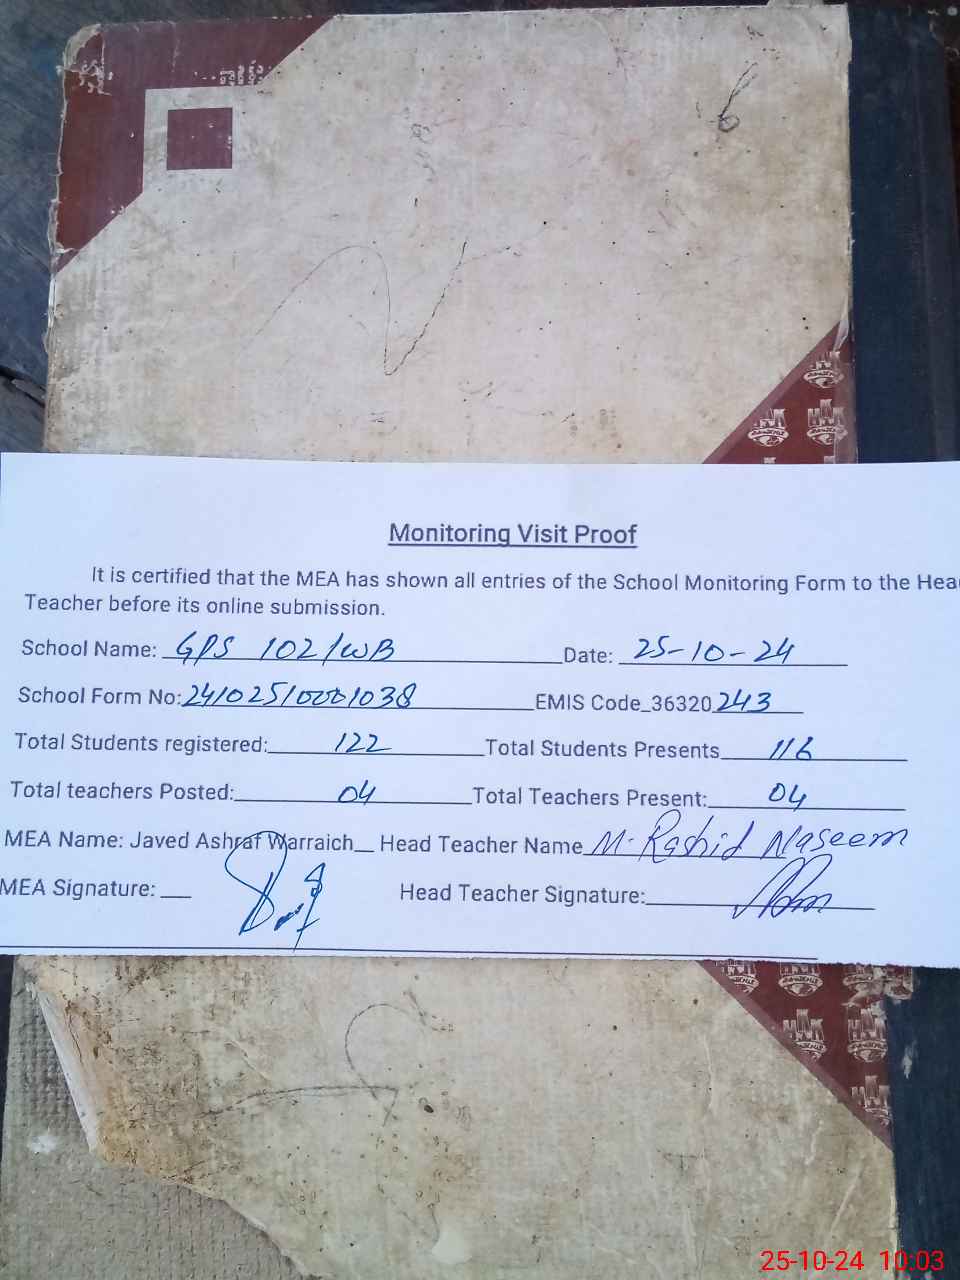 Monitoring Visit Proof
It is certified that the MEA has shown all entries of the School Monitoring Form to the Hea
Teacher before its online submission.
School Name: GPS 102/WB Date: 25-10-24
School Form No: 24102510001038 EMIS Code_36320 243
Total Students registered: 122 Total Students Presents 116
Total teachers Posted: 04 Total Teachers Present: 04
MEA Name: Javed Ashraf Warraich Head Teacher Name M. Rashid Naseem
MEA Signature: Head Teacher Signature:
25-10-24 10:03